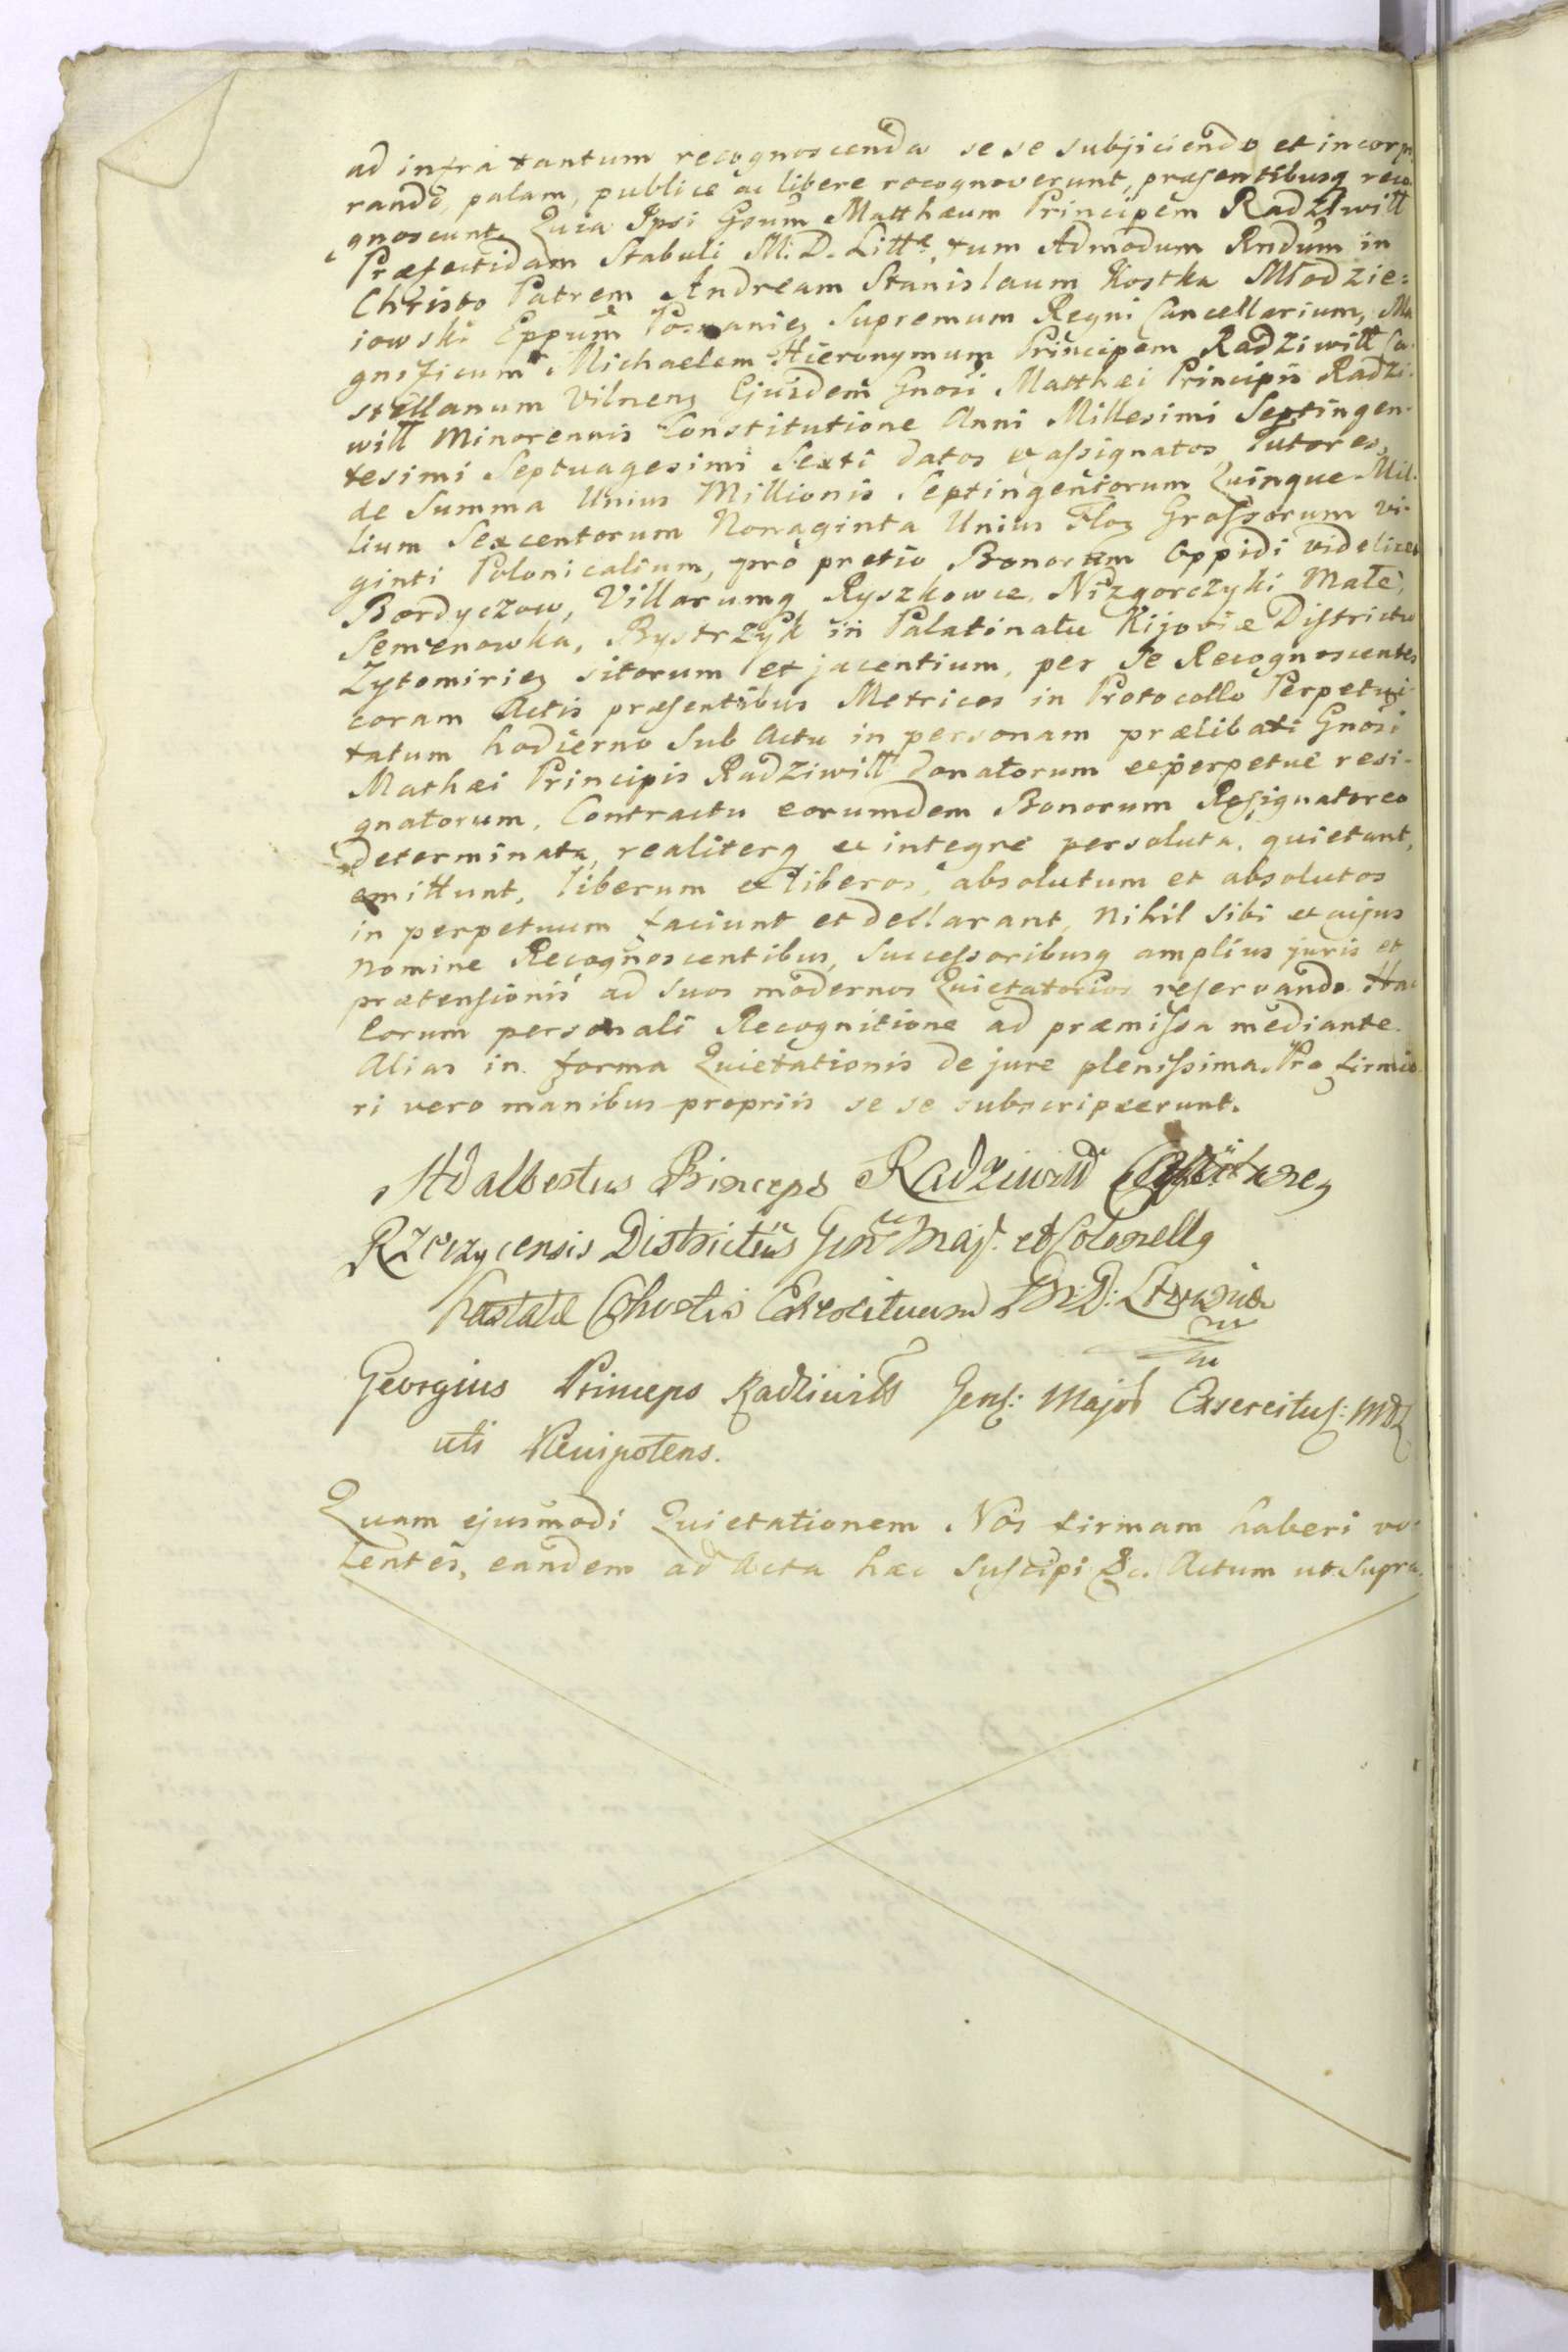 ad infra tantum recognoscenda se se subjiciendo et incorpo
rando, palam, publice ac libere recognoverunt, præsentibusq reco
gnoscunt. Quia Ipsi Gsum Matthæum Principem Radziwiłł
Præfectidam Stabuli M. D. Litt. tum Admodum Rndum in
Christo Patrem Andream Stanislaum Kostka Młodzie:
iowski Eppum Posnanien Supremum Regni Cancellarium, Ma
gnificum Michaelem Hieronymum Principem Radziwiłł Ca
stellanum Vilnen Ejusdem Gnosi Matthæi Principis Radzi-
wiłł Minorennis Constitutione Anni Millesimi Septingen-
tesimi Septuagesimi Sexti datos et assignatos Tutores,
de Summa Unius Millionis Septingentorum Quinque Mil-
lium Sexcentorum Nonaginta Unius Floz Grossorum vi-
ginti Polonicalium, pro pretio Bonorum Oppidi videlicet
Berdyczow, Villarumq Ryszkowce, Nizgorczyki Małe,
Semenowka, Bystrzyk in Palatinatu Kijoviæ Districtu
Zytomirien sitorum et jacentium, per Se Recognoscentes
coram Actis præsentibus Metrices in Protocollo Perpetui-
tatum hodierno sub Actu in personam prælibati Gnosi
Mathæi Principis Radziwiłł donatorum et perpetue resi-
gnatorum, Contractu eorumdem Bonorum Resignatoreo
determinata, realiterq et integre persoluta, quietant,
emittunt, liberum et liberos, absolutum et absolutos
in perpetuum faciunt et declarant, Nihil sibi et cujus
nomine Recognoscentibus, Successoribusq amplius juris et
prætensionis ad suos modernos Quietatorios reservando Hac
eorum personali Recognitione ad præmissa mediante.
Alias in forma Quietationis de jure plenissima. Pro firmio
ri vero manibus propriis se se subscripserunt.
Adalbertus Princeps Radziwiłł
Rzeczycensis Districtus Gen Maj. et Colonellq
Hastatæ Cohortis Exercituum M: D: Lituaniæ
Georgius Princeps Radziwiłł Gen: Major Exsercitus: MDL
uti Plenipotens.
Quam ejusmodi Quietationem Nos firmam haberi vo-
lentes, eandem ad Acta hæc suscipi &c. Actum ut supra.